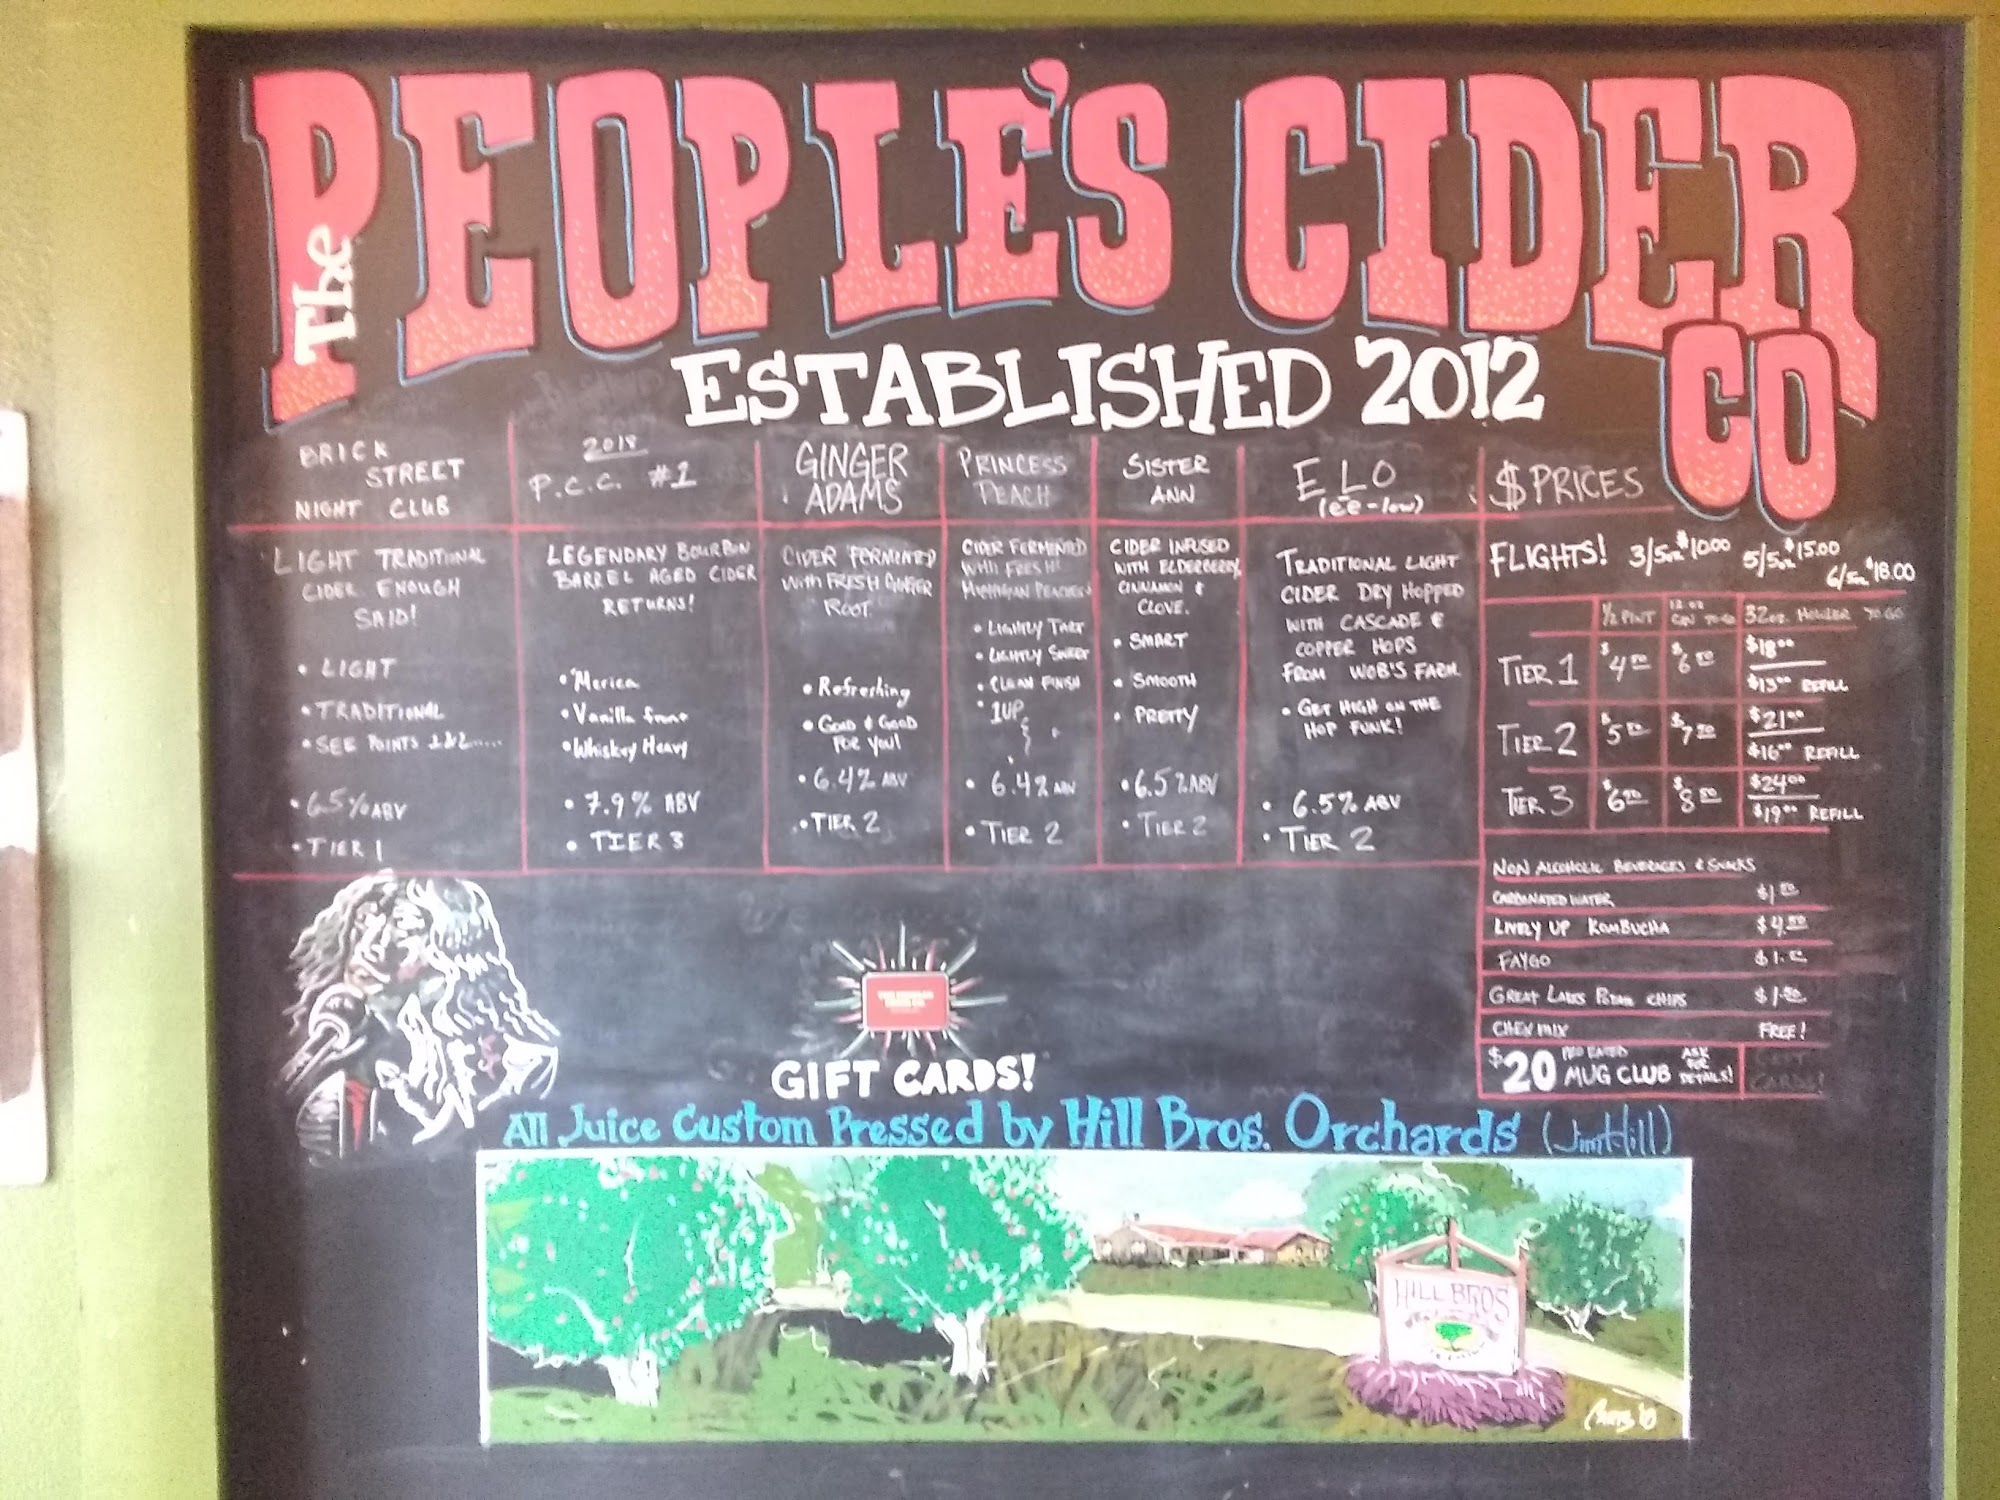 The PEOPLE'S CIDER CO
ESTABLISHED 2012
BRICK
STREET
NIGHT CLUB
LIGHT TRADITIONAL
CIDER. ENOUGH
SAID!
• LIGHT
• TRADITIONAL
• SEE POINTS 1&2.....
• 6.5% ABV
• TIER 1
2018
P.C.C. #1
LEGENDARY BOURBON
BARREL AGED CIDER
RETURNS!
• 'Merica
• Vanilla
• Whiskey Heavy
• 7.9% ABV
• TIER 3
GINGER
ADAMS
CIDER FERMENTED
WITH FRESH GINGER
ROOT.
• Refreshing
• GOOD & GOOD
FOR YOU!
• 6.4% ABV
• TIER 2
PRINCESS
PEACH
CIDER FERMENTED
WITH FRESH
MICHIGAN PEACHES
• LIGHTLY TART
• LIGHTLY SWEET
• CLEAN FINISH
• 1UP
• 6.4% ABV
• TIER 2
SISTER
ANN
CIDER INFUSED
WITH ELDERBERRY,
CINNAMON &
CLOVE.
• SMART
• SMOOTH
• PRETTY
• 6.5% ABV
• TIER 2
ELO
(ēē-low)
TRADITIONAL LIGHT
CIDER DRY HOPPED
WITH CASCADE &
COPPER HOPS
FROM WOB'S FARM
• GET HIGH ON THE
HOP FUNK!
• 6.5% ABV
• TIER 2
$ PRICES
FLIGHTS! 3/5oz $10.00 5/5oz $15.00
6/5oz $18.00
1/2 PINT 12 oz CAN TO GO 32oz. HOWLER TO GO
TIER 1 $4.50 $6.50 $18.00
$13.00 REFILL
TIER 2 $5.50 $7.50 $21.00
$16.00 REFILL
TIER 3 $6.50 $8.50 $24.00
$19.00 REFILL
NON ALCOHOLIC BEVERAGES & SNACKS
CARBONATED WATER $1.50
LIVELY UP KOMBUCHA $4.50
FAYGO
GREAT LAKES POTATO CHIPS $1.50
CHEX MIX FREE!
$20 MUG CLUB ASK FOR DETAILS!
GIFT CARDS!
GIFT CARDS!
All Juice Custom Pressed by Hill Bros. Orchards (Jim Hill)
HILL BROS